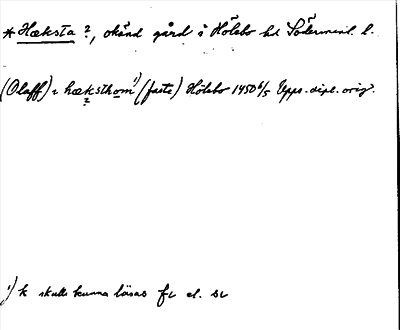 * Hæksta ?, okänd gård i Hölebo hd Södermanl. l.
(Olaff) i hæksthom ¹) (faste) Hölebo 1450 6/5 Upps. dipl. orig.
?
¹) k skulle kunna läsas fc el. sc